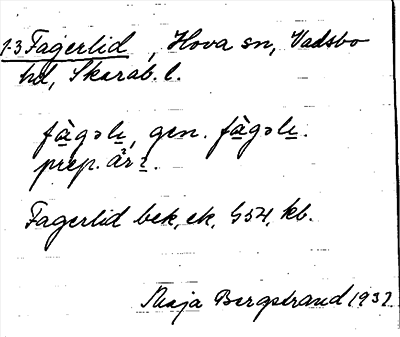 1-3 Fagerlid, Hova sn, Vadsbo
hd, Skarab. l.
fàgəlɩ, gen. fàgəlɩ.
prep. 
Fagerlid bek, ek, 654, kb.
Maja Bergstrand 1932